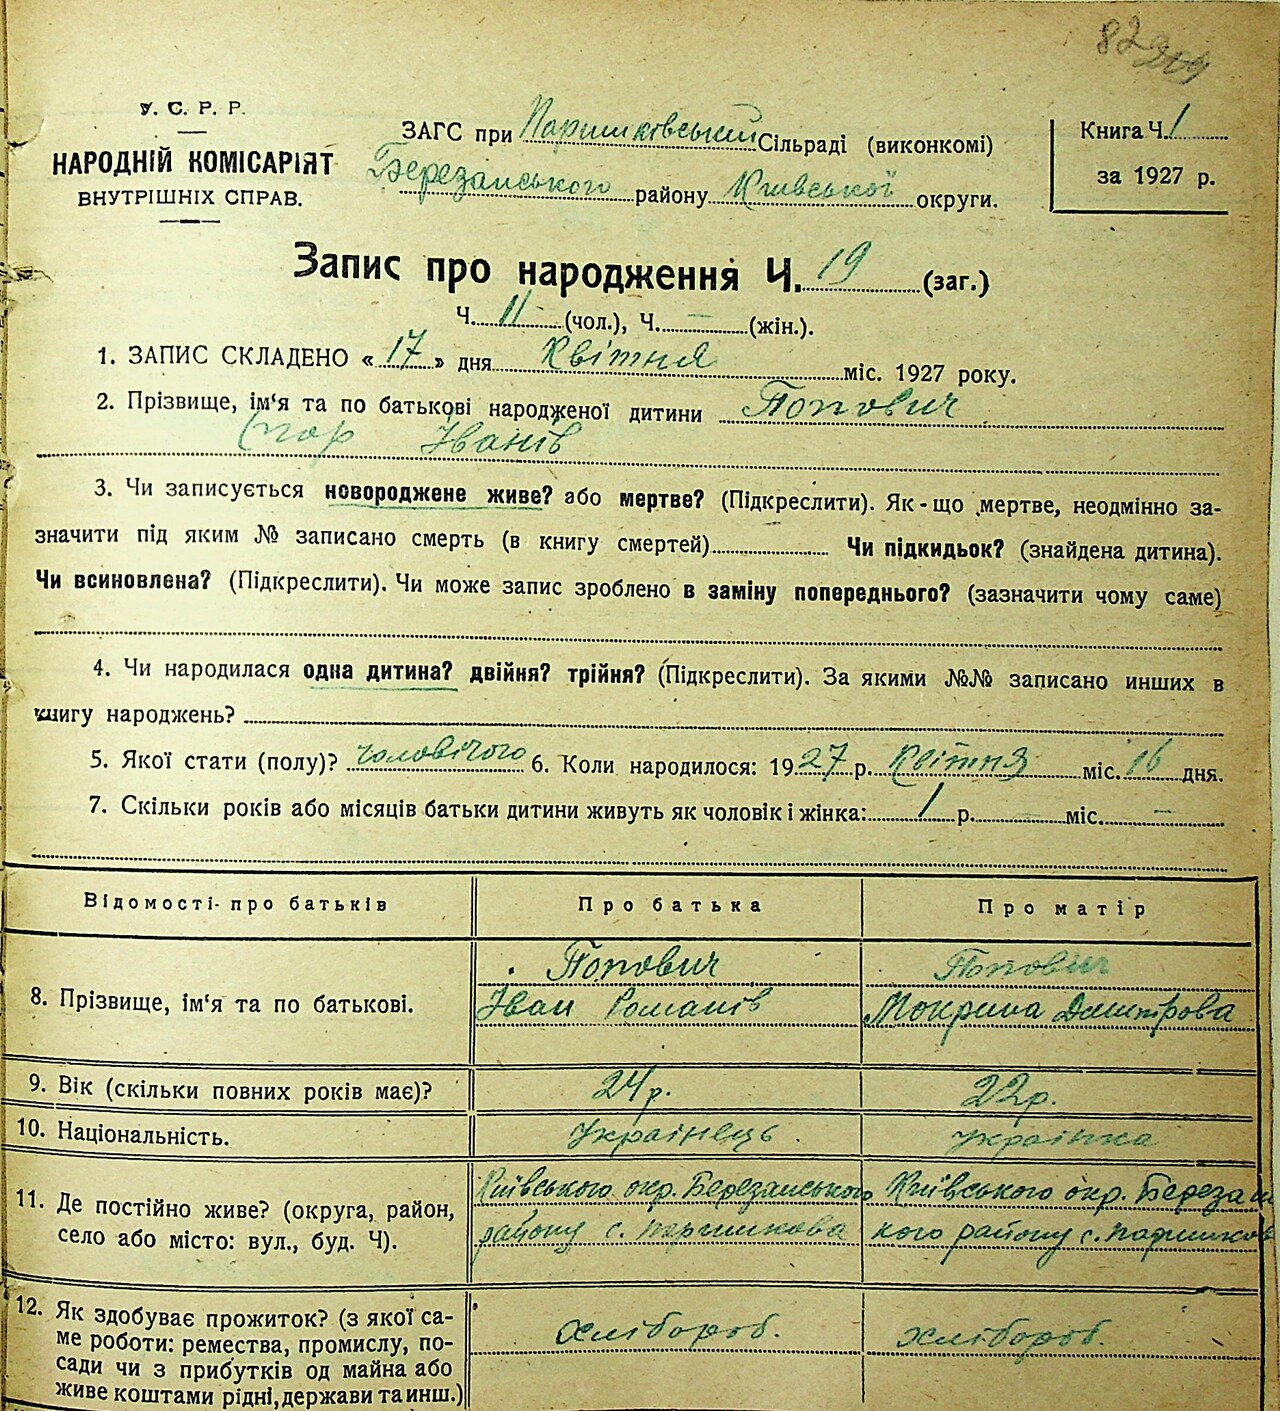 82
У. С. Р. Р.
НАРОДНІЙ КОМІСАРІЯТ
ВНУТРІШНІХ СПРАВ.
ЗАГС при Паришківський Сільраді (виконкомі)
Березанського району Київської округи.
Книга Ч. 1
за 1927 р.
Запис про народження Ч. 19 (заг.)
Ч. 11 (чол.), Ч. — (жін.).
1. ЗАПИС СКЛАДЕНО «17» дня Квітня міс. 1927 року.
2. Прізвище, ім‘я та по батькові народженої дитини Попович
Ігор Іванів
3. Чи записується новороджене живе? або мертве? (Підкреслити). Як-що мертве, неодмінно за-
значити під яким № записано смерть (в книгу смертей) Чи підкидьок? (знайдена дитина).
Чи всиновлена? (Підкреслити). Чи може запис зроблено в заміну попереднього? (зазначити чому саме)
4. Чи народилася одна дитина? двійня? трійня? (Підкреслити). За якими №№ записано инших в
книгу народжень?
5. Якої стати (полу)? чоловічого 6. Коли народилося: 1927 р. Квітня міс. 16 дня.
7. Скільки років або місяців батьки дитини живуть як чоловік і жінка: 1 р. — міс. —
Відомості про батьків
Про батька
Про матір
8. Прізвище, ім‘я та по батькові.
Попович
Іван Романів
Попович
Мокрина Дмитрова
9. Вік (скільки повних років має)?
24 р.
22 р.
10. Національність.
Українець.
Українка
11. Де постійно живе? (округа, район,
село або місто: вул., буд. Ч).
Київського окр. Березанського
району с. Паришкова
Київського окр. Березан
кого району с. Паришков
12. Як здобуває прожиток? (з якої са-
ме роботи: ремества, промислу, по-
сади чи з прибутків од майна або
живе коштами рідні, держави та инш.)
хлібороб.
хлібороб.